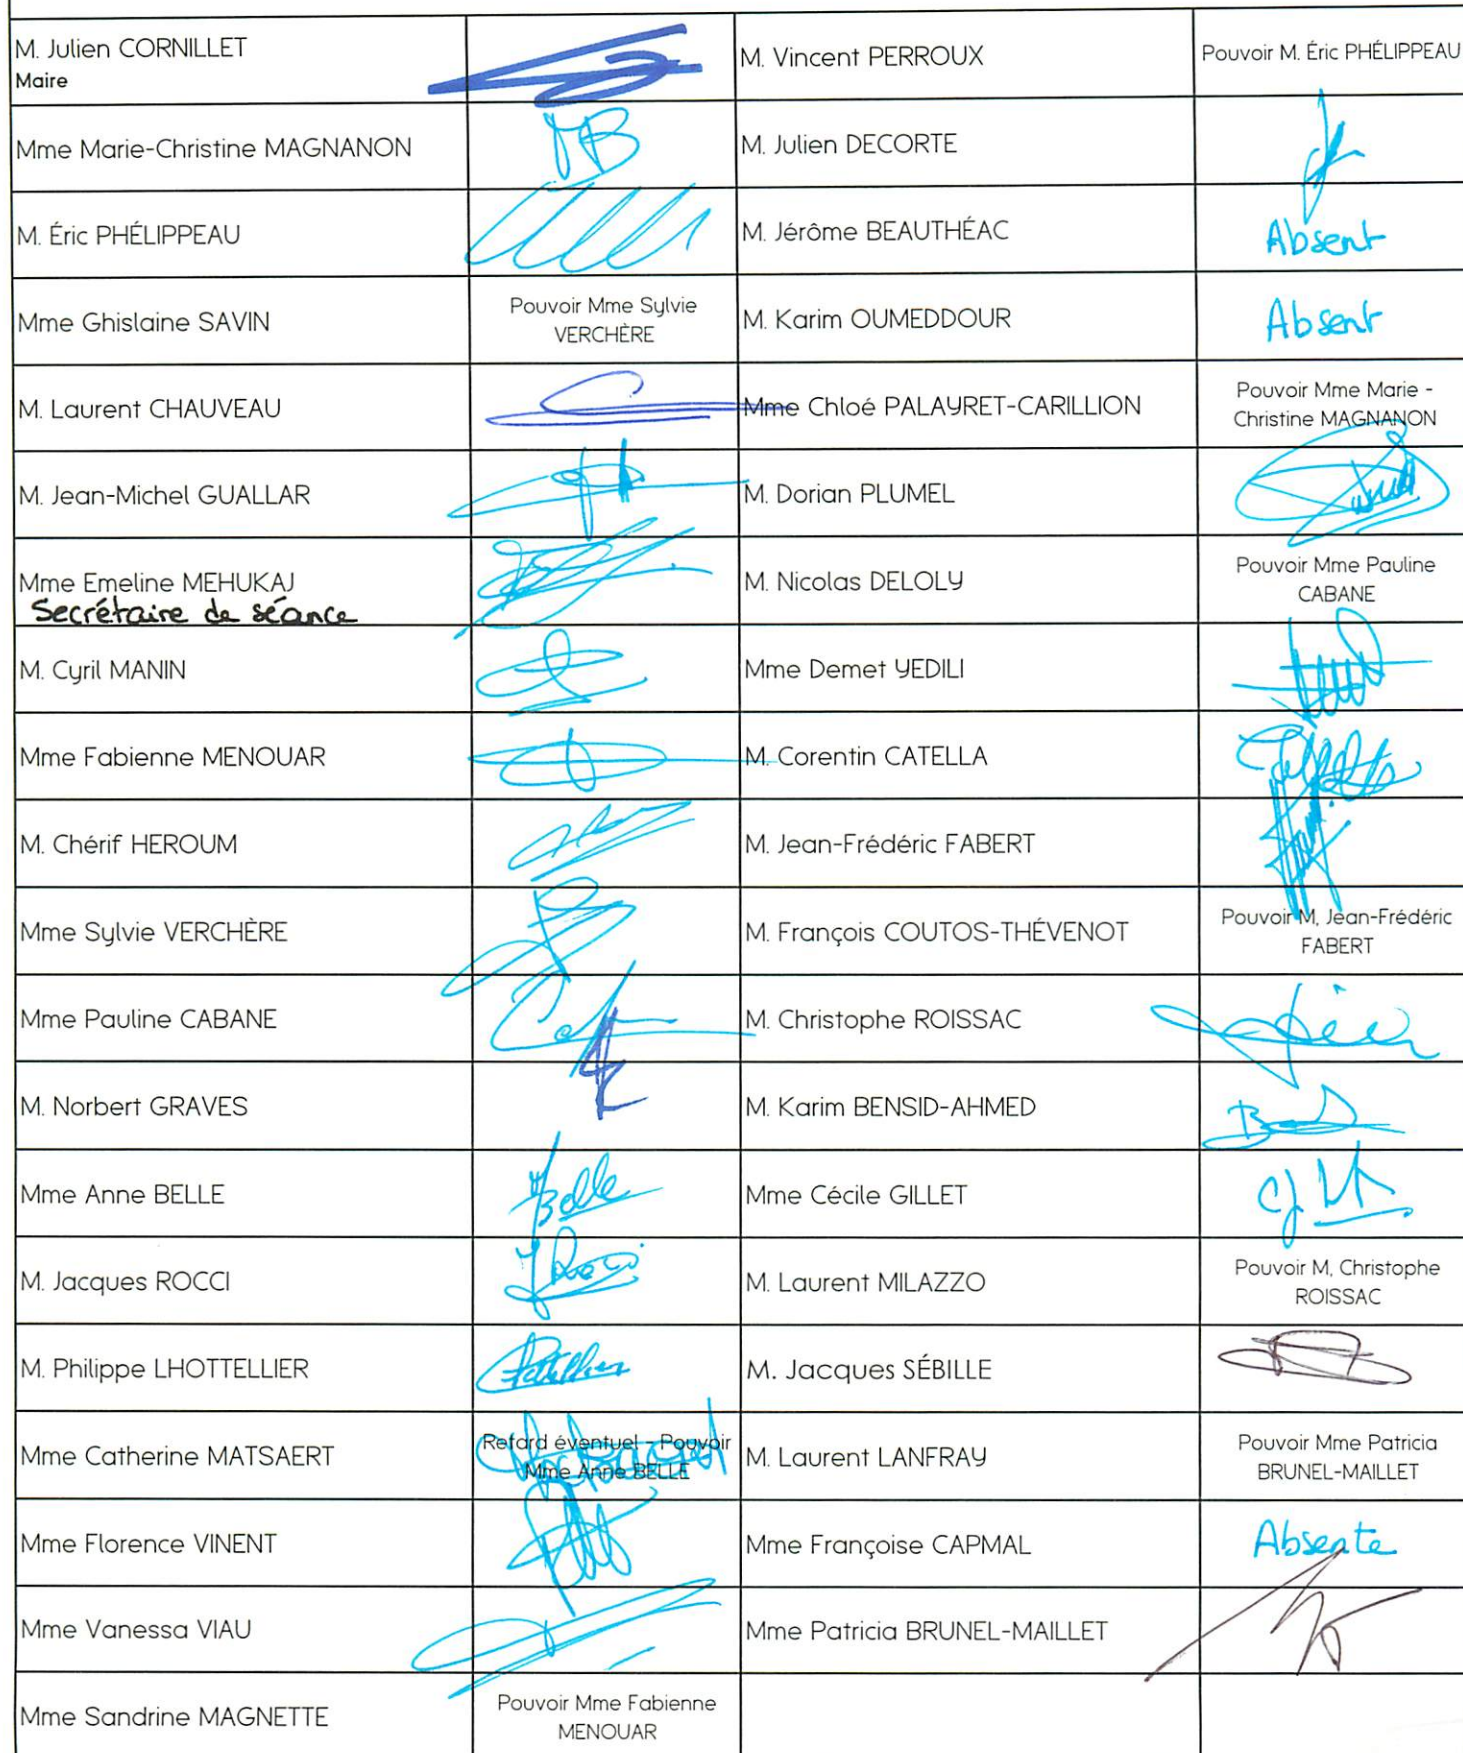 M. Julien CORNILLET
Maire
M. Vincent PERROUX
Pouvoir M. Éric PHÉLIPPEAU
Mme Marie-Christine MAGNANON
M. Julien DECORTE
M. Éric PHÉLIPPEAU
M. Jérôme BEAUTHÉAC
Absent
Mme Ghislaine SAVIN
Pouvoir Mme Sylvie
VERCHÈRE
M. Karim OUMEDDOUR
Absent
M. Laurent CHAUVEAU
Mme Chloé PALAYRET-CARILLION
Pouvoir Mme Marie -
Christine MAGNANON
M. Jean-Michel GUALLAR
M. Dorian PLUMEL
Mme Emeline MEHUKAJ
Secrétaire de séance
M. Nicolas DELOLY
Pouvoir Mme Pauline
CABANE
M. Cyril MANIN
Mme Demet YEDILI
Mme Fabienne MENOUAR
M. Corentin CATELLA
M. Chérif HEROUM
M. Jean-Frédéric FABERT
Mme Sylvie VERCHÈRE
M. François COUTOS-THÉVENOT
Pouvoir M, Jean-Frédéric
FABERT
Mme Pauline CABANE
M. Christophe ROISSAC
M. Norbert GRAVES
M. Karim BENSID-AHMED
Mme Anne BELLE
Belle
Mme Cécile GILLET
M. Jacques ROCCI
M. Laurent MILAZZO
Pouvoir M, Christophe
ROISSAC
M. Philippe LHOTTELLIER
M. Jacques SÉBILLE
Mme Catherine MATSAERT
Retard éventuel - Pouvoir
Mme Anne BELLE
M. Laurent LANFRAY
Pouvoir Mme Patricia
BRUNEL-MAILLET
Mme Florence VINENT
Mme Françoise CAPMAL
Absente
Mme Vanessa VIAU
Mme Patricia BRUNEL-MAILLET
Mme Sandrine MAGNETTE
Pouvoir Mme Fabienne
MENOUAR